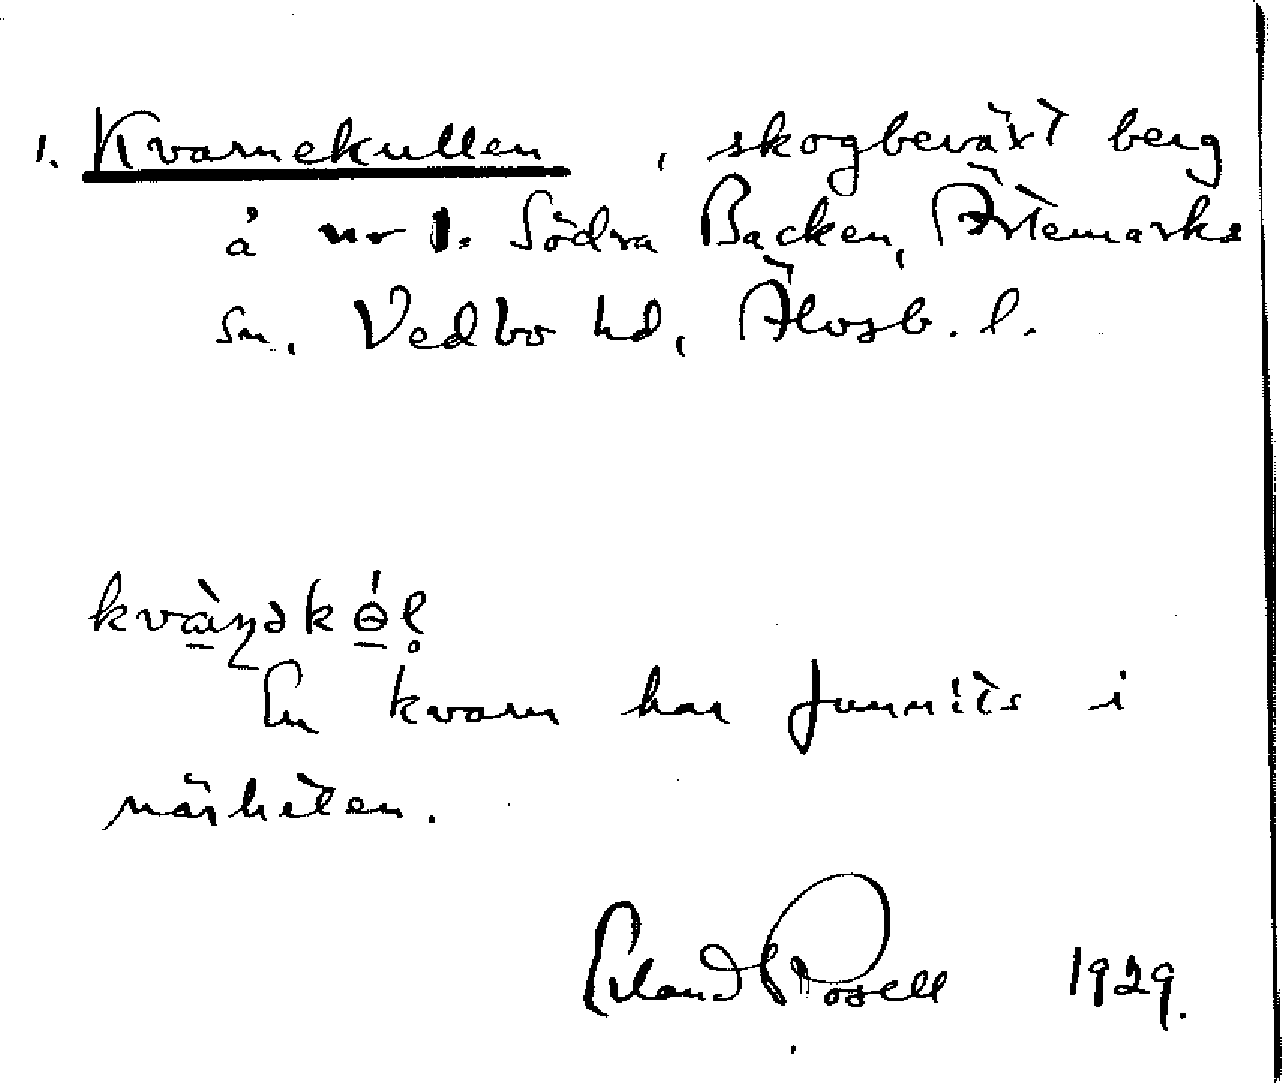 1. Kvarnekullen, skogbeväxt berg
å nr 1. Södra Backen, Ärtemarks
sn, Vedbo hd, Älvsb. l.
kvàɳəkɵ́l̥
En kvarn har funnits i
närheten.
Erland Rosell 1929.